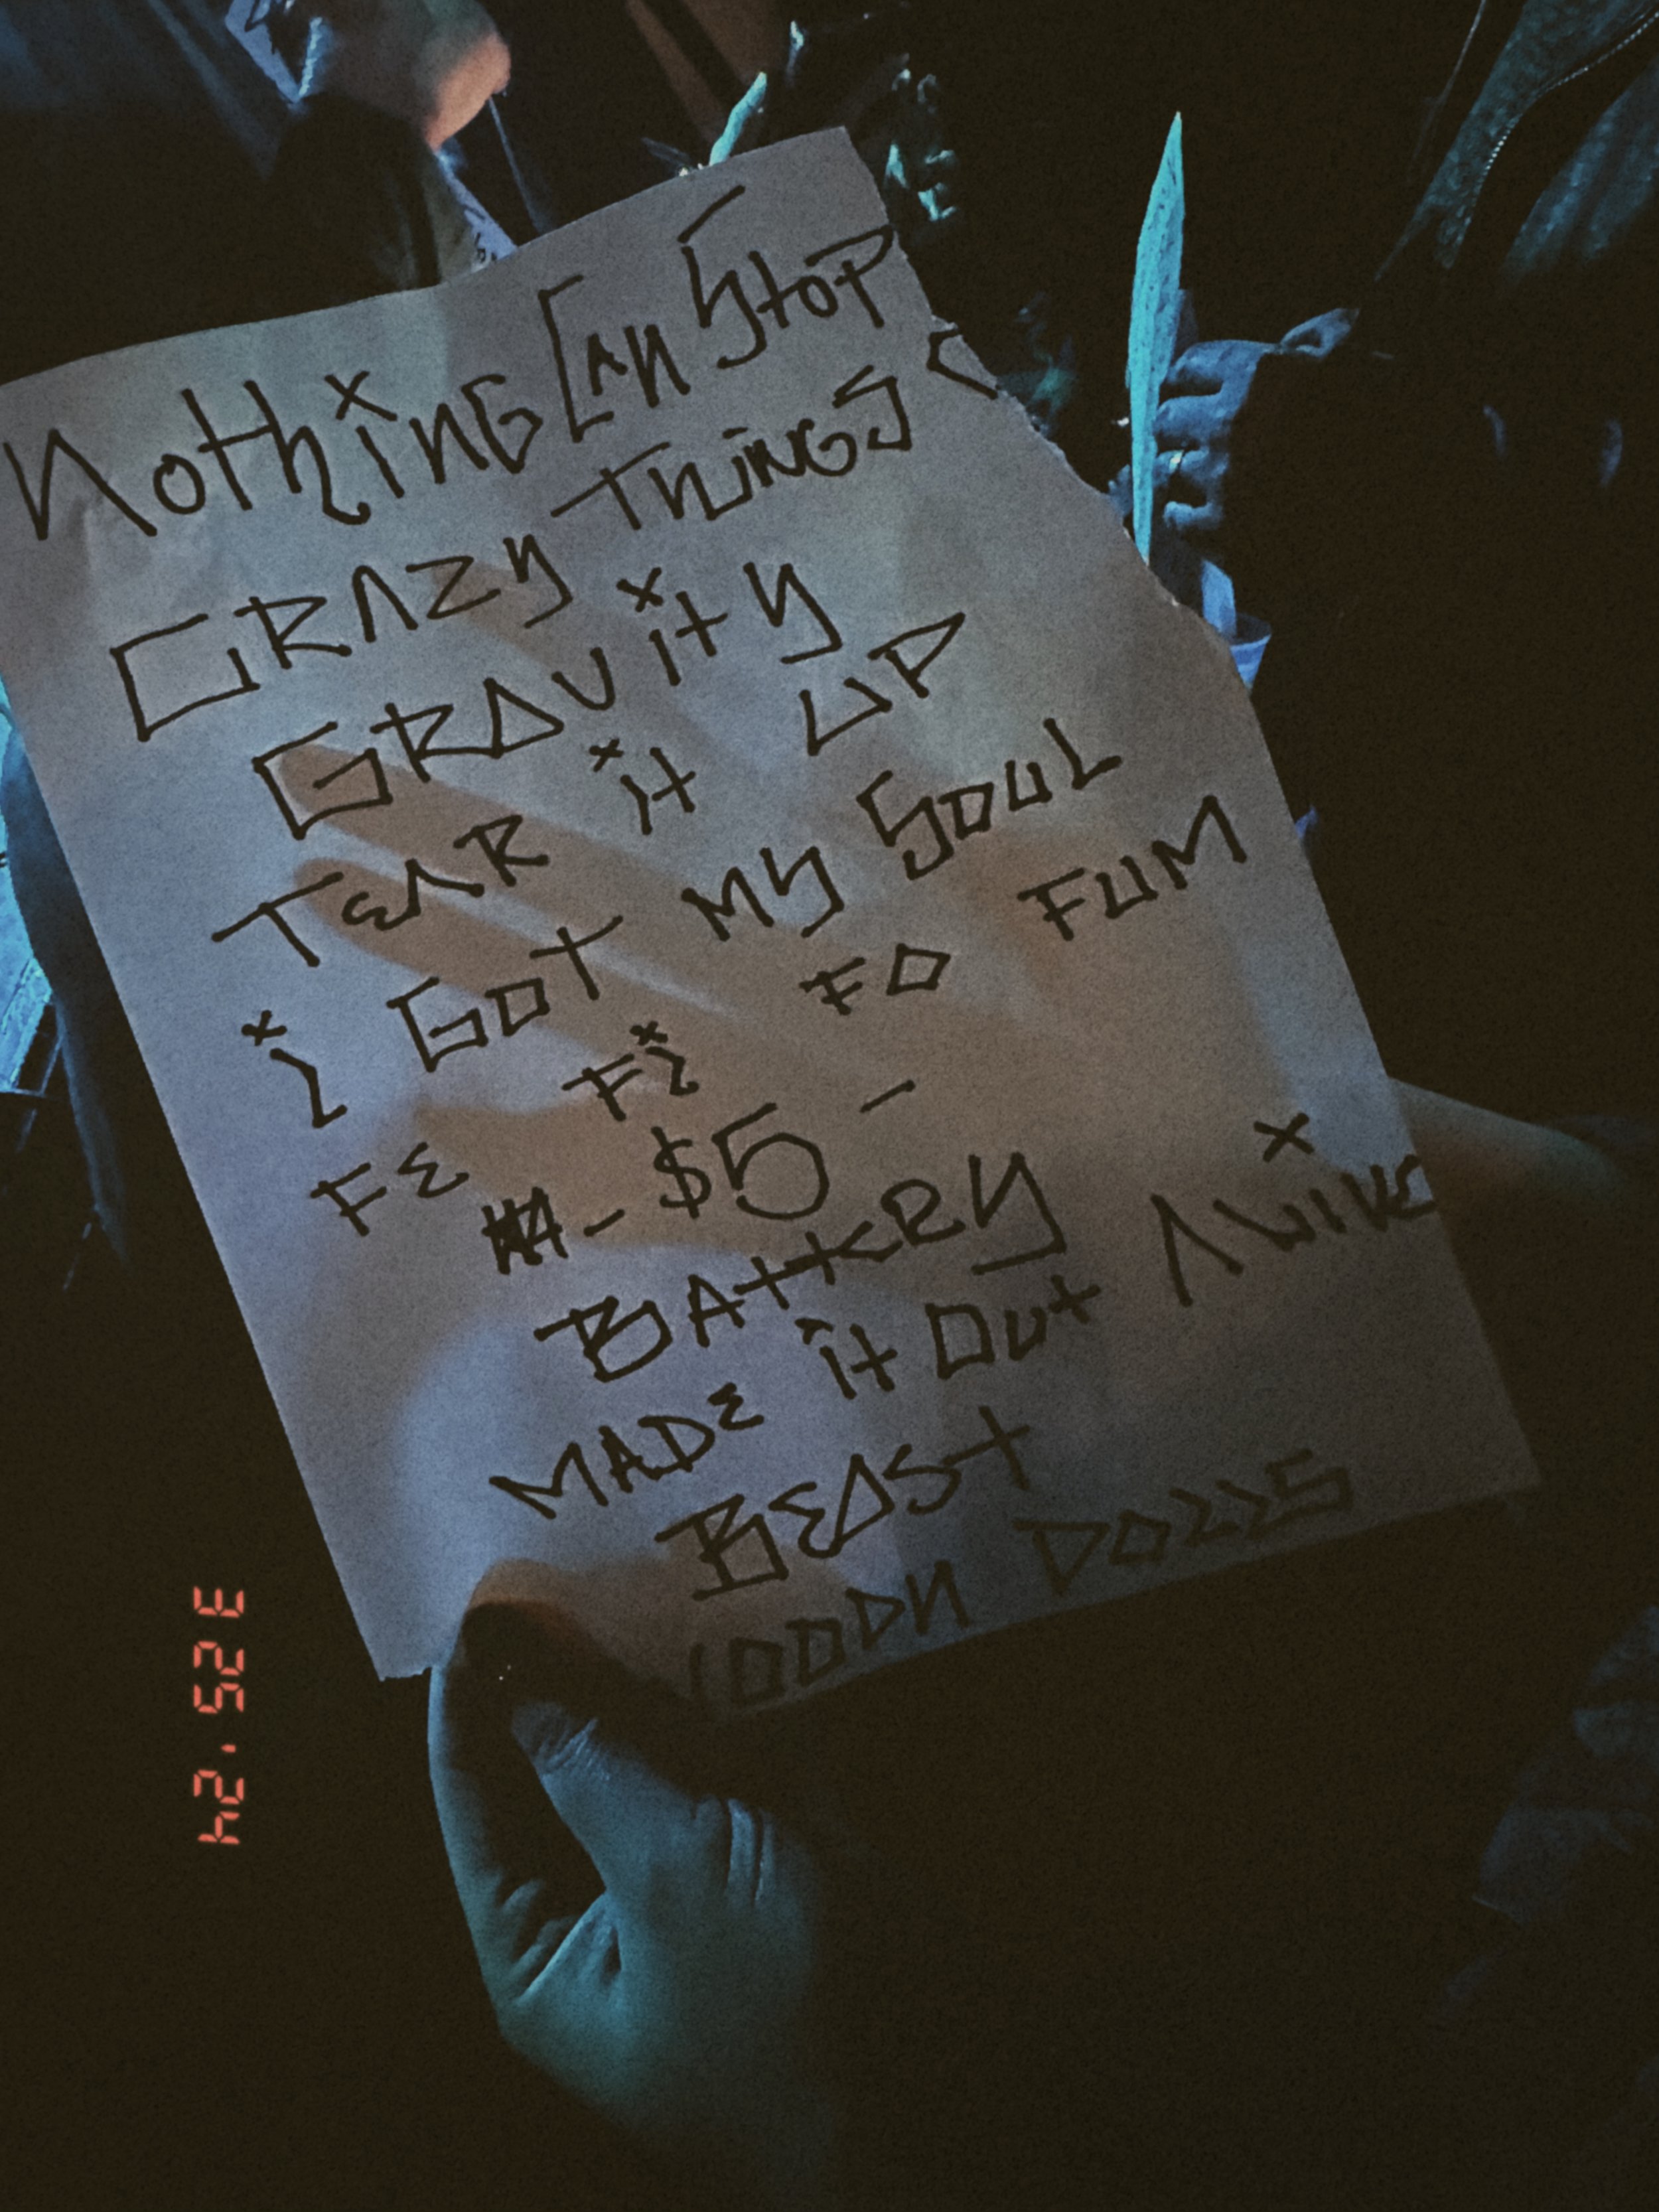 Nothing Can Stop
Crazy Things
Gravity
Tear it up
i Got My Soul
FE Fi FO FUM
- $5 -
Battery
Made it Out Alive
Beast
Dolls
3 25 '24